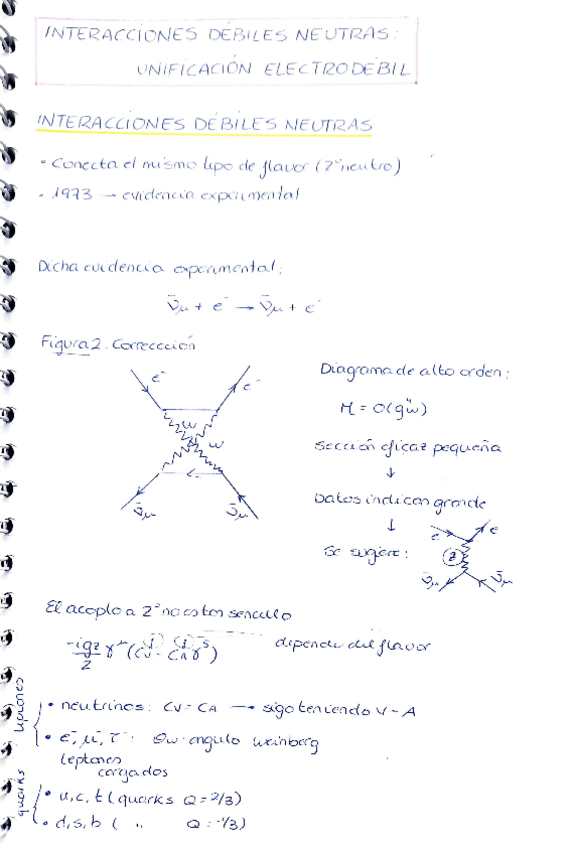 INTERACCIONES DÉBILES NEUTRAS:
UNIFICACIÓN ELECTRODÉBIL
INTERACCIONES DÉBILES NEUTRAS
• Conecta el mismo tipo de flavor (Z° neutro)
• 1973 → evidencia experimental
Dicha evidencia experimental:
ν̄μ + e⁻ → ν̄μ + e⁻
Figura 2. Correccción
e⁻ e⁻
W W
ν̄μ ν̄μ
Diagrama de alto orden:
M = O(g⁴w)
sección eficaz pequeña
↓
Datos indican grande
↓
Se sugiere:
e e
Z
ν̄μ ν̄μ
El acoplo a Z° no es tan sencillo
-igz/2 γ^μ (Cv^f - CA^f γ^5) depende del flavor
leptones
• neutrinos: Cv = CA → sigo teniendo V-A
• e⁻, μ⁻, τ⁻: θw ángulo weinberg
leptones
cargados
quarks
• u, c, t (quarks Q = 2/3)
• d, s, b ( " Q = -1/3)